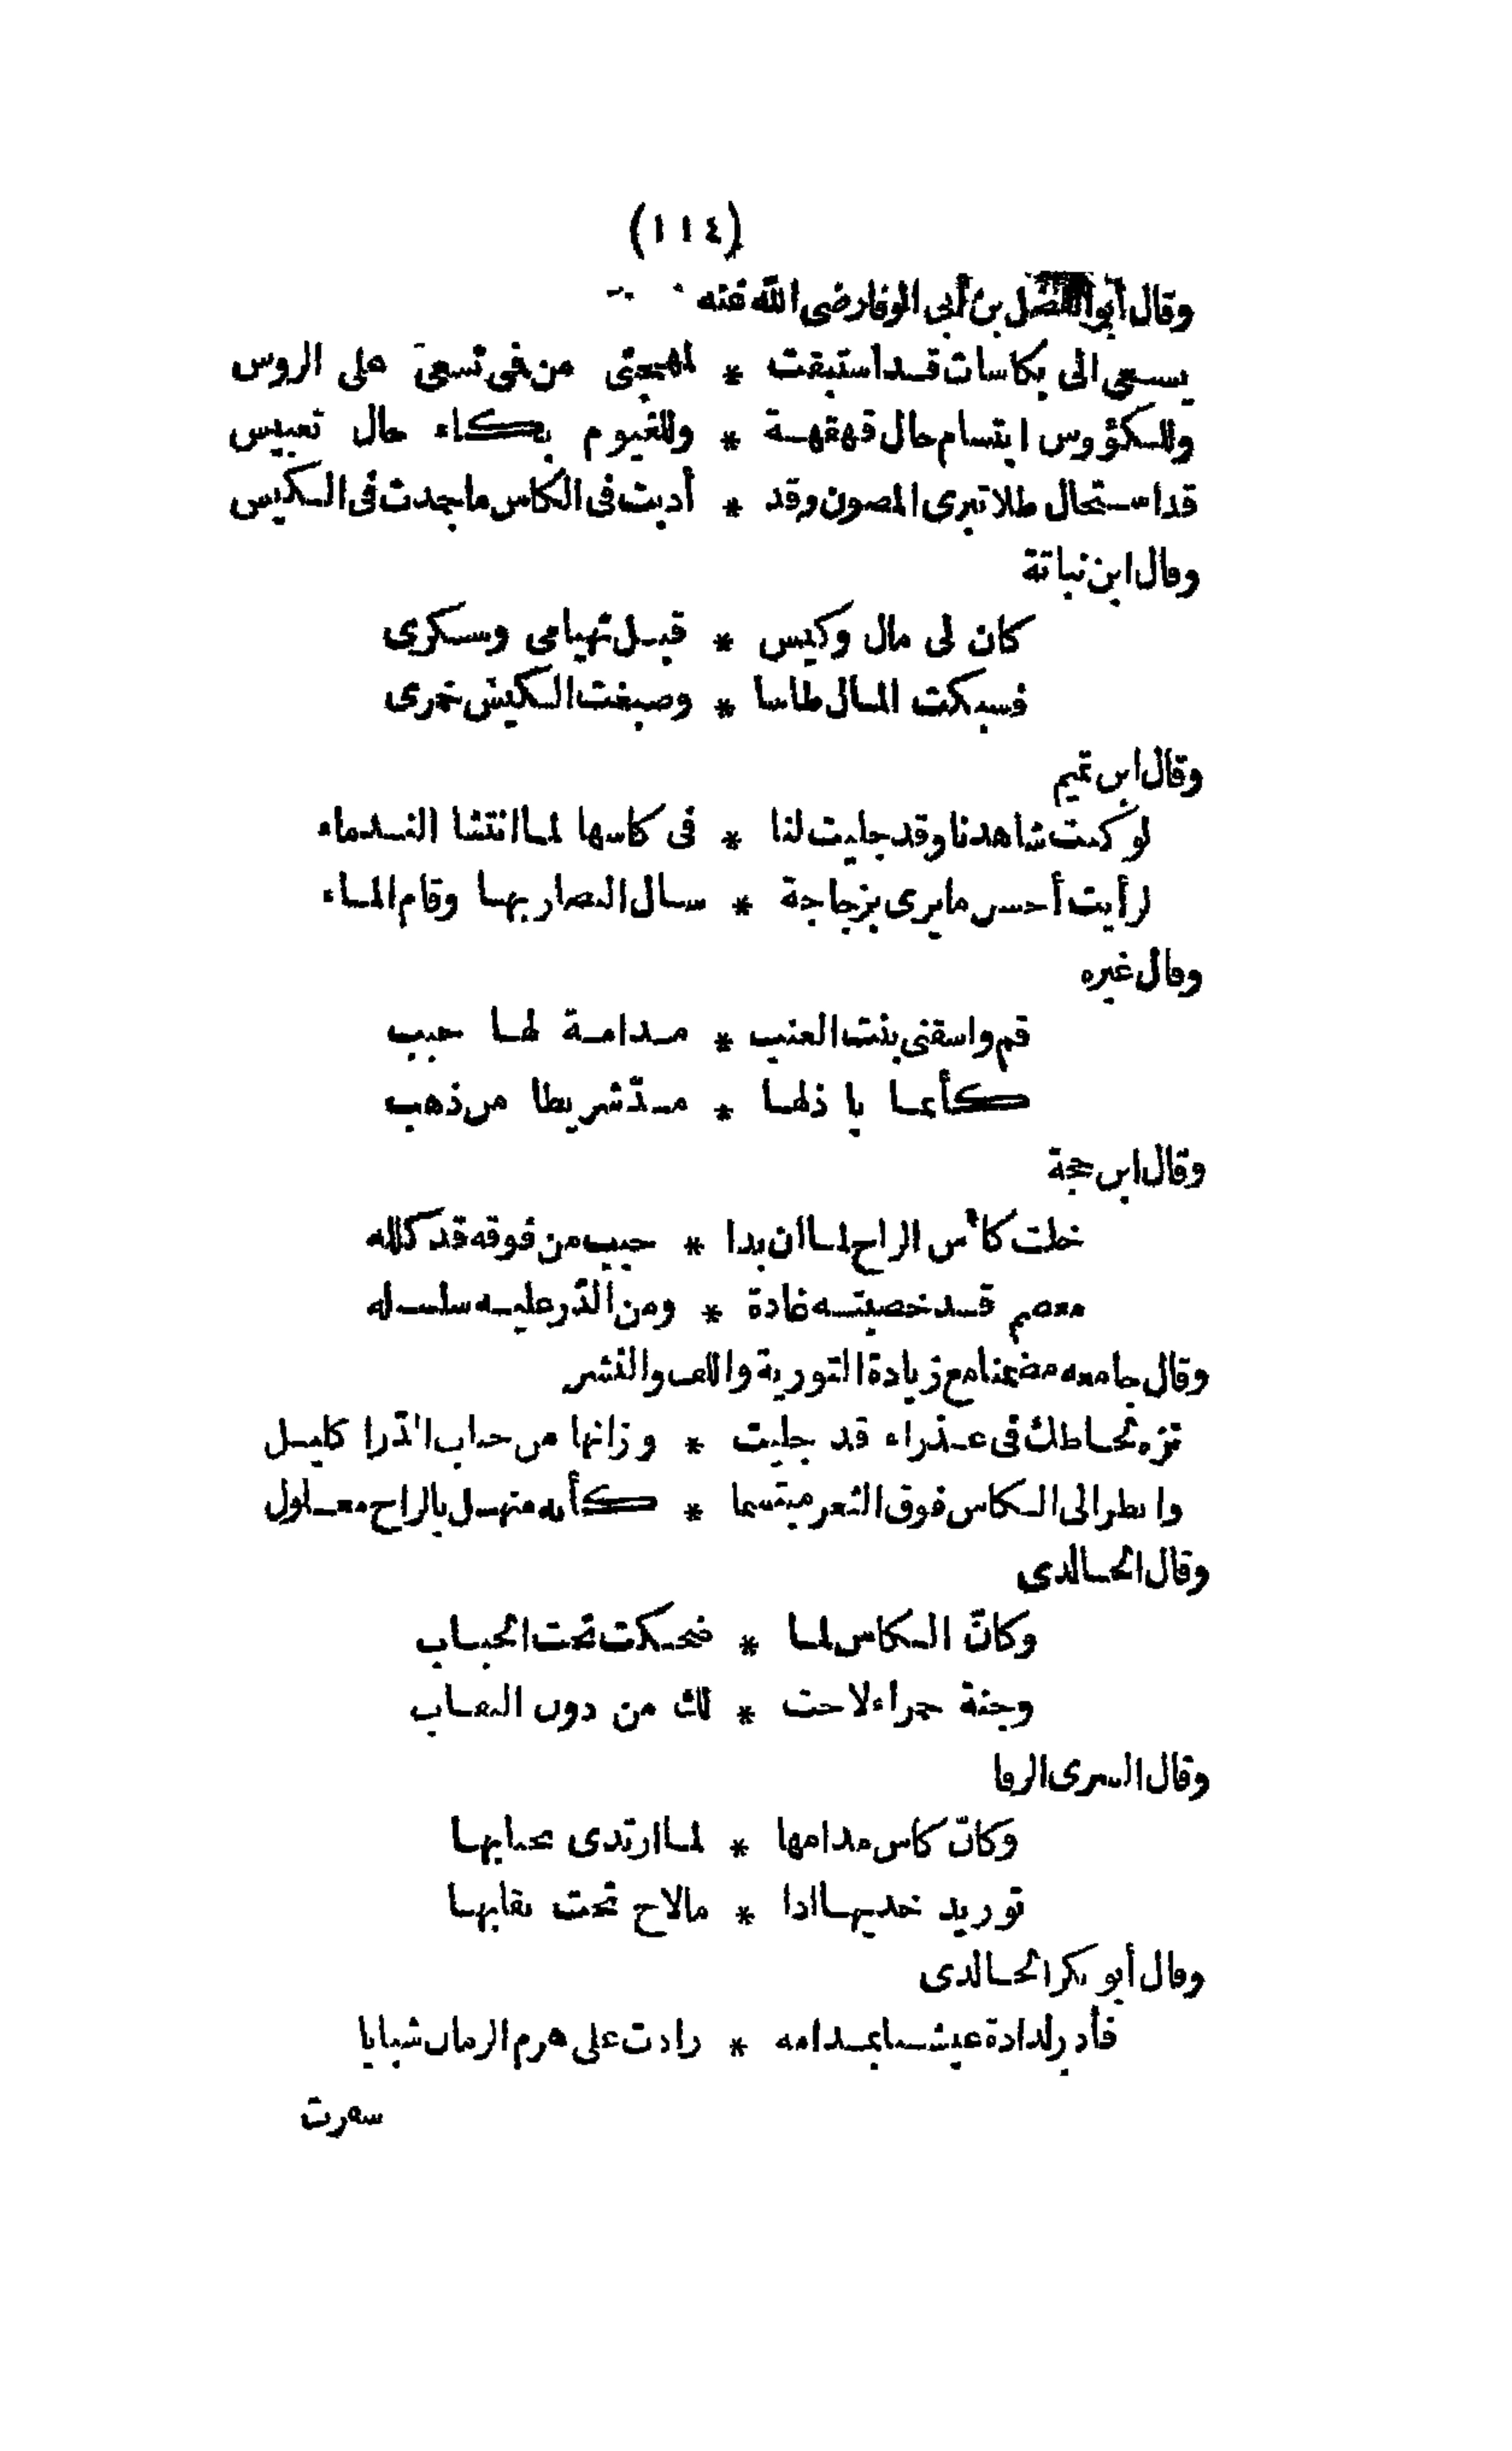 (١١٤)
وقال أبو الفضل بن أبي الوفا رضى الله عنه
يسعى الى بكاسات قد استبقت * لمهجتى من فى تسعى على الروس
وللكؤوس ابتسام حال قهقهة * وللغيوم بكاء حال تعبيس
قد استحال طلا تبرى المصون وقد * أذبت فى الكاس ما جمدت فى الكيس
وقال ابن نباتة
كان لى مال وكيس * قبل تهيامى وسكرى
فسبكت المال طاسا * وصبغت الكيس خمرى
وقال ابن تميم
لو كنت شاهدنا وقد جليت لنا * فى كاسها لما انتشا الندماء
لرأيت أحسن ما يرى بزجاجة * سال النضار بها وقام الماء
وقال غيره
قم واسقنى بنت العنب * مدامة لها حبب
كأنما باذلها * مدّ شريطا من ذهب
وقال ابن حجة
خلت كأس الراح لما ان بدا * حبب من فوقه قد كلله
معصم قد خضبته غادة * ومن الدّر عليه سلسله
وقال جامعه مضمنا مع زيادة التورية واللف والنشر
نزه لحاظك فى عذراء قد جليت * وزانها من حباب الدّر اكليل
وانظر الى الكاس فوق الثغر مبتسما * كأنه منهل بالراح معلول
وقال الخالدى
وكانّ الكاس لما * ضحكت تحت الحباب
وجنة حمراء لاحت * لك من دون النقاب
وقال السرى الرفا
وكانّ كاس مدامها * لما ارتدى بحبابها
توريد خديها اذا * ما لاح تحت نقابها
وقال أبو بكر الخالدى
فأدر لذاذة عيشنا بمدامه * زادت على هرم الزمان شبابا
سفرت